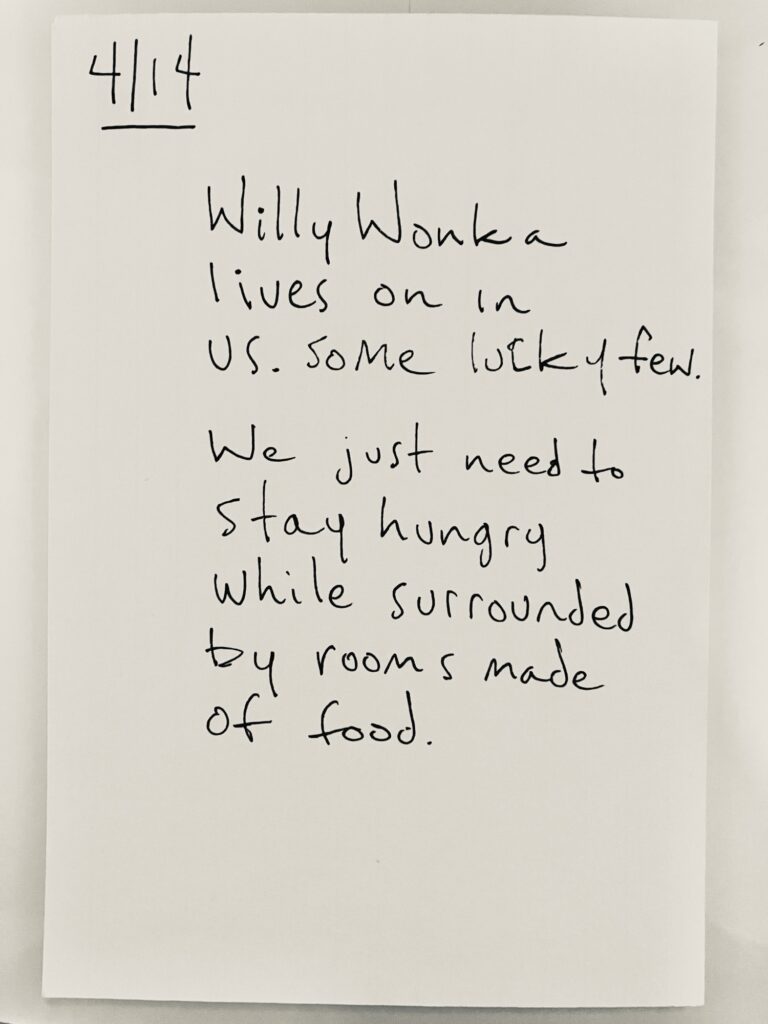 4/14
Willy Wonka
lives on in
us. some lucky few.
We just need to
stay hungry
while surrounded
by rooms made
of food.